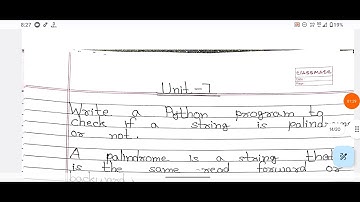 8:27
CLASSMATE
Unit.-7
Write a Python program to
check if a string is palindrome
or not.
14/20
A palindrome is a string that
is the same read forward or
backward